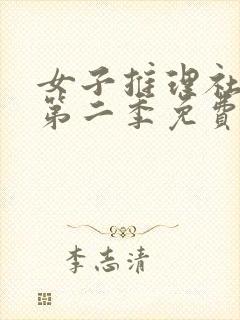 女子推理社
第二季免費
李志清